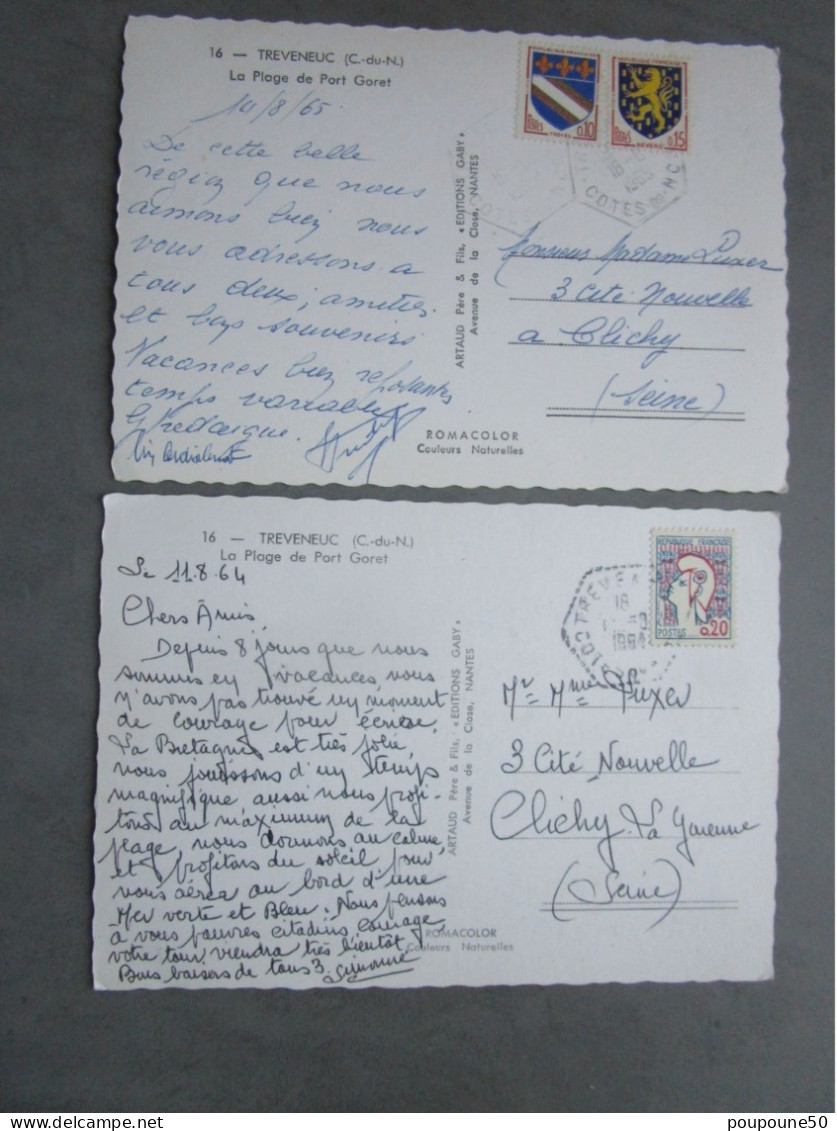 16 — TREVENEUC (C.-du-N.)
La Plage de Port Goret
14/8/65
De cette belle
région que nous
aimons bien nous
vous adressons a
tous deux, amitiés
et bons souvenirs
Vacances bien reposantes
temps variable
REPUBLIQUE FRANÇAISE
POSTES 0,10
TROYES
REPUBLIQUE FRANÇAISE
POSTES 0,15
NEVERS
COTES DU NORD
ARTAUD Père & Fils, « EDITIONS GABY »
Avenue de la Close, NANTES
Monsieur Madame Puxer
3 Cité Nouvelle
a Clichy
(Seine)
ROMACOLOR
Couleurs Naturelles
16 — TREVENEUC (C.-du-N.)
La Plage de Port Goret
Le 11.8.64
Chers Amis,
Depuis 8 jours que nous
sommes en vacances nous
n'avons pas trouvé un moment
de courage pour écrire.
La Bretagne est très jolie,
nous jouissons d'un temps
magnifique, aussi nous profi-
tons au maximum de la
plage, nous dormons au calme,
et profitons du soleil pour
vous aérer au bord d'une
Mer verte et Bleu. Nous pensons
à vous pauvres citadins courage,
votre tour viendra très bientôt
Bons baisers de tous 3. Simonne
REPUBLIQUE FRANÇAISE
POSTES 0,20
18
1964
ARTAUD Père & Fils, « EDITIONS GABY »
Avenue de la Close, NANTES
Mr Mme Puxer
3 Cité Nouvelle
Clichy La Garenne
(Seine)
ROMACOLOR
Couleurs Naturelles
poupoune50